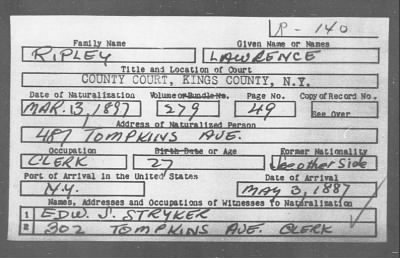 R - 140
Family Name Given Name or Names
RIPLEY LAWRENCE
Title and Location of Court
COUNTY COURT, KINGS COUNTY, N.Y.
Date of Naturalization Volume or Bundle No. Page No. Copy of Record No.
MAR. 13, 1897 279 49 See Over
Address of Naturalized Person
487 TOMPKINS AVE.
Occupation Birth Date or Age Former Nationality
CLERK 27 See other Side
Port of Arrival in the United States Date of Arrival
N.Y. MAY 3, 1887
Names, Addresses and Occupations of Witnesses to Naturalization
1 EDW. J. STRYKER
2 302 TOMPKINS AVE. CLERK